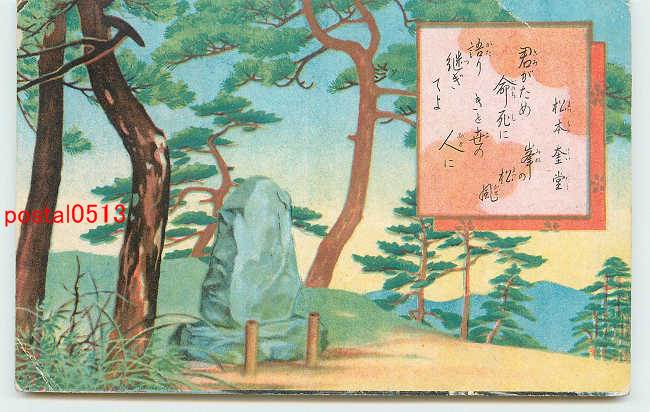 松本奎堂
君がため 峯の
命死に 松風
語り きと世の
継ぎ 人に
てよ
postal0513